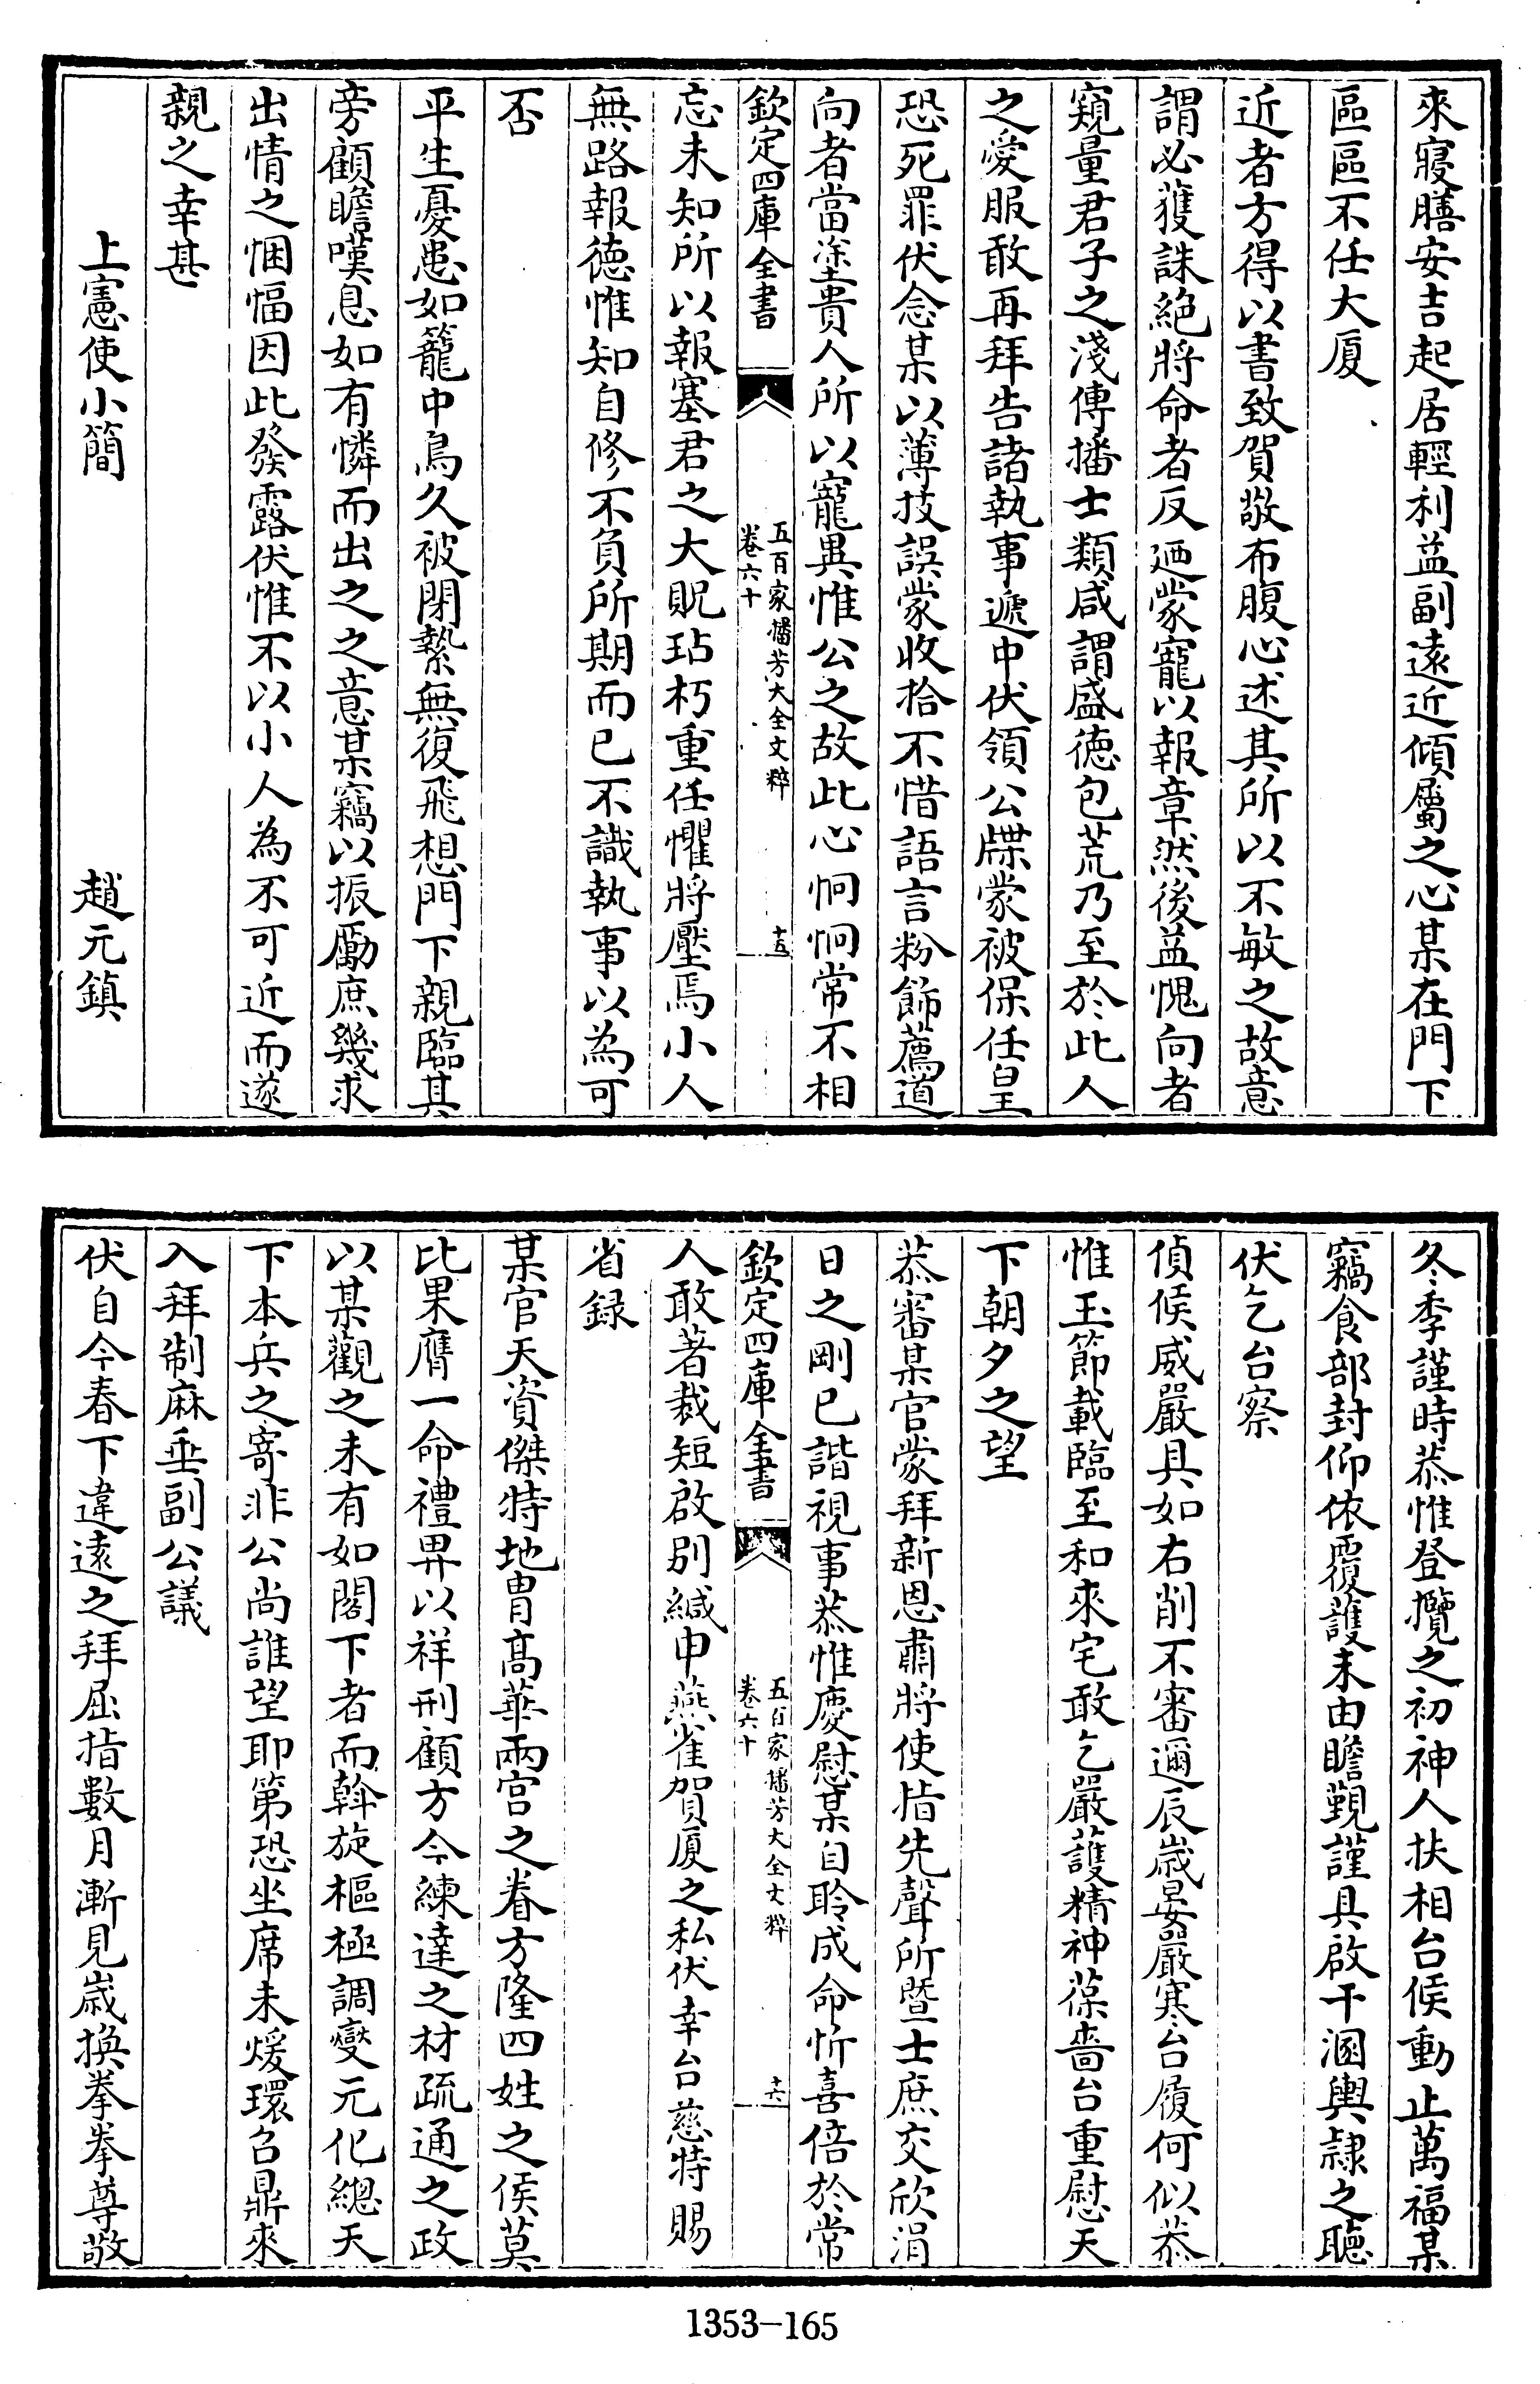 來寢膳安吉起居輕利益副遠近傾屬之心某在門下
區區不任大厦
近者方得以書致賀敬布腹心述其所以不敏之故意
謂必獲誅絕將命者反廼蒙寵以報章然後益愧向者
窺量君子之淺傳播士類咸謂盛德包荒乃至於此人
之愛服敢再拜告諸執事遞中伏領公牒蒙被保任皇
恐死罪伏念某以薄技誤蒙收拾不惜語言粉飾薦道
向者當塗貴人所以寵異惟公之故此心恫恫常不相
欽定四庫全書
五百家播芳大全文粹
卷六十
十五
忘未知所以報塞君之大貺玷朽重任懼將壓焉小人
無路報德惟知自修不負所期而已不識執事以為可
否
平生憂患如籠中鳥久被閉縶無復飛想門下親臨其
旁顧瞻嘆息如有憐而出之之意某竊以振勵庶幾求
出情之悃愊因此發露伏惟不以小人為不可近而遂
親之幸甚
上憲使小簡
趙元鎮
冬季謹時恭惟登攬之初神人扶相台候動止萬福某
竊食部封仰依覆護未由瞻覲謹具啟干溷輿隷之聽
伏乞台察
偵候威嚴具如右削不審邇辰歲晏嚴寒台履何似恭
惟玉節載臨至和來宅敢乞嚴護精神葆嗇台重慰天
下朝夕之望
恭審某官蒙拜新恩肅將使指先聲所曁士庶交欣涓
日之剛已諧視事恭惟慶慰某自聆成命忻喜倍於常
欽定四庫全書
五百家播芳大全文粹
卷六十
十六
人敢著裁短啟別緘申燕雀賀厦之私伏幸台慈特賜
省録
某官天資傑特地胄高華兩宫之眷方隆四姓之侯莫
比果膺一命禮畀以祥刑顧方今練達之材疏通之政
以某觀之未有如閣下者而斡旋樞極調燮元化總天
下本兵之寄非公尚誰望耶第恐坐席未煖環召鼎來
入拜制麻垂副公議
伏自今春下違遠之拜屈指數月漸見歲換拳拳尊敬
1353-165